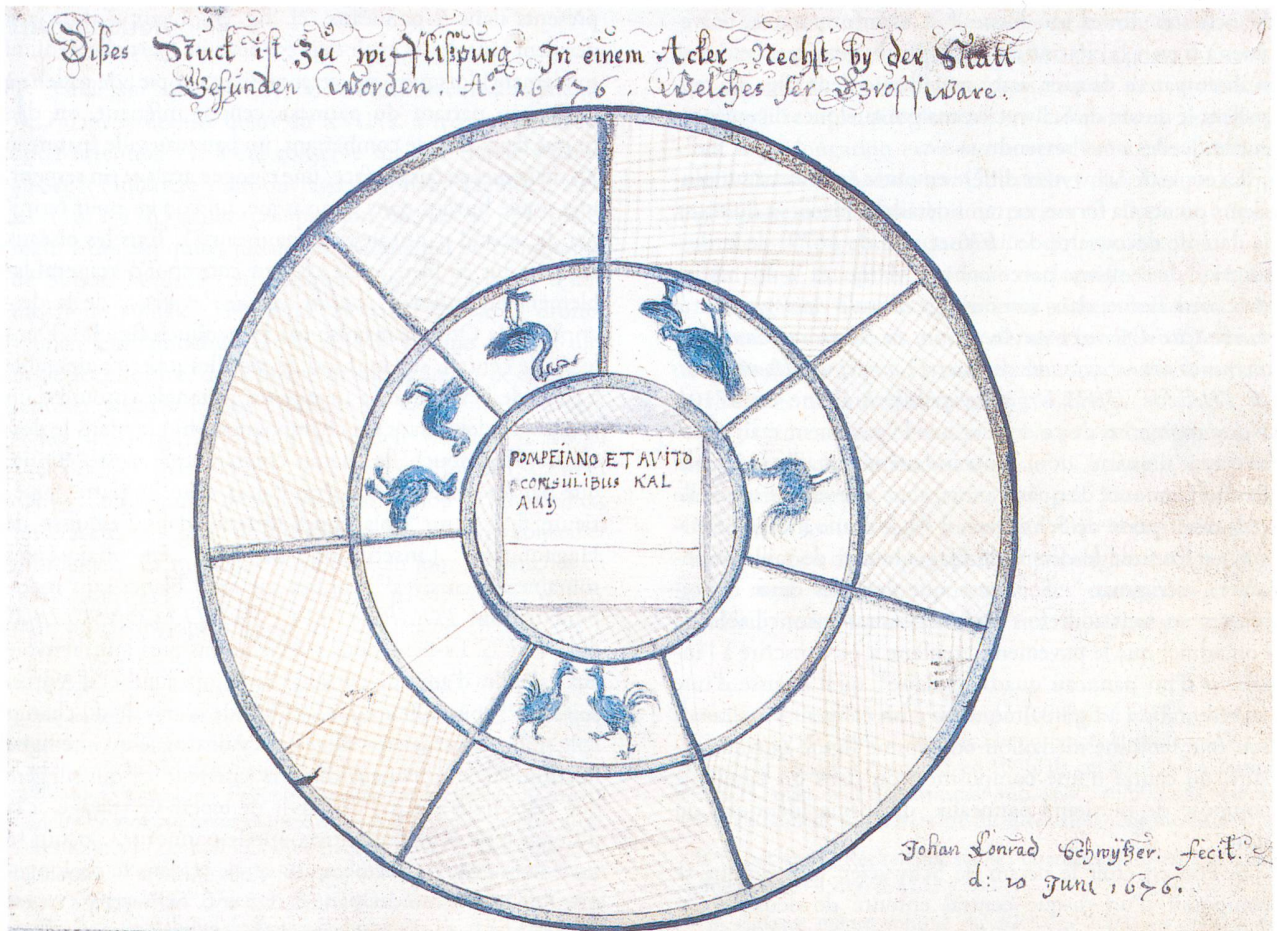 Dißes Stuck ist Zu wiflispurg In einem Acker Nechst by der Statt
Gefunden Worden. A° 1676 Welches ser Gross Ware.
POMPEIANO ET AVITO
CONSULIBUS KAL
AUG
Johan Conrad Schwÿtzer. fecit.
d: 10 Juni 1676.